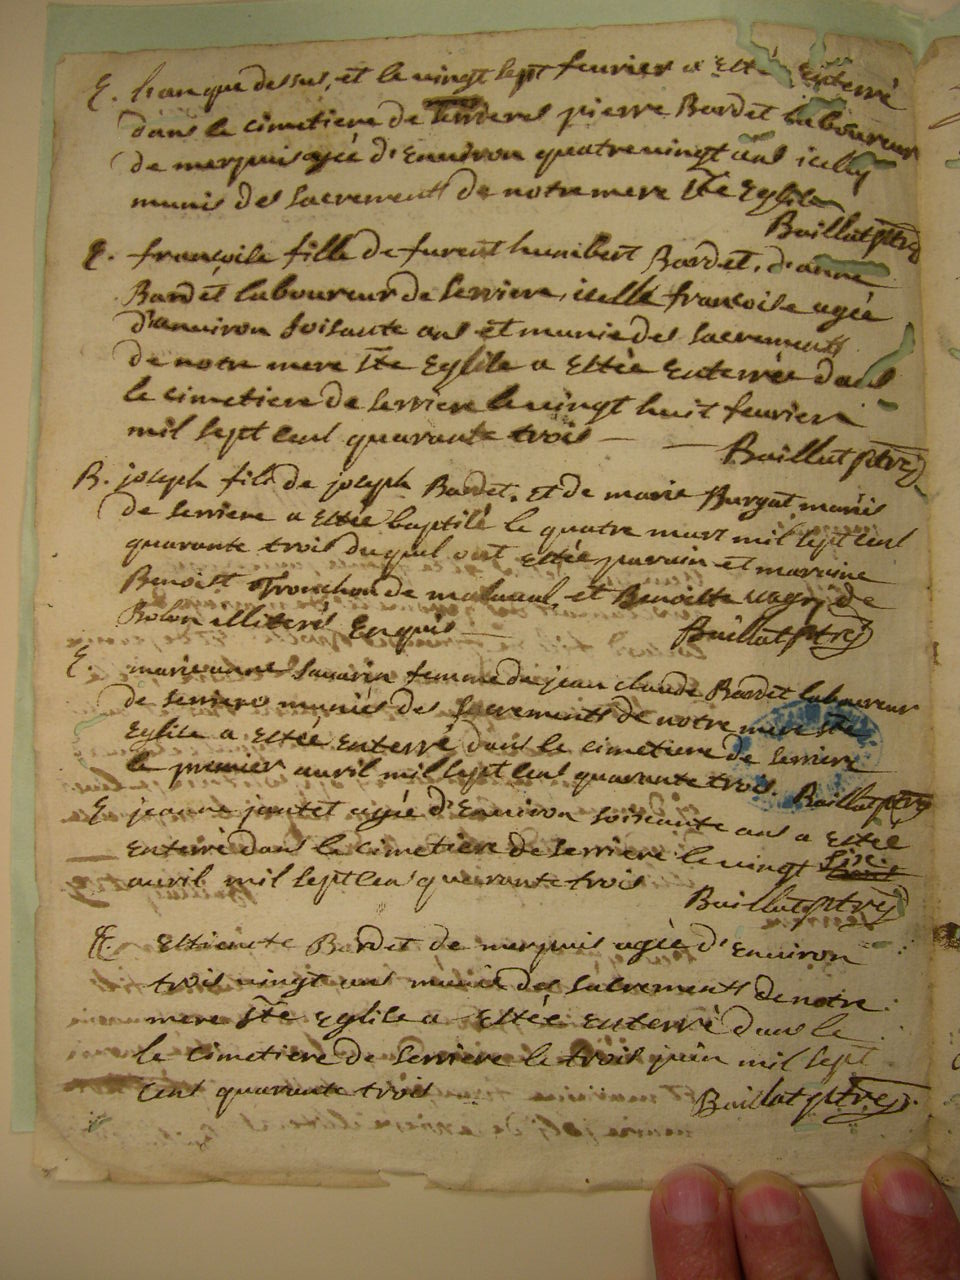 E. l'an que dessus, et le vingt sept feurier a esté enterré
dans le cimetiere de serriere pierre Bardet laboureur
de merpuis agéé d'Enuiron quatre vingt ans icelluy
munis des sacrements de notre mere Ste Eglise
Baillat ptre
E. francoise fille de furent humbert Bardet, d'anne
Bardet laboureur de serriere, icelle francoise agéé
d'anuiron soisante ans et munie des sacrements
de notre mere Ste Eglise a Estéé Enterréé dans
le cimetiere de serriere le vingt huit feurier
mil sept cent quarante trois
Baillat ptre
B. joseph fils de joseph Bardet, et de marie Burgat mariés
de serriere a Estéé baptisé le quatre mars mil sept cent
quarante trois duquel ont Estéé parain et maraine
Benoist Tronchon de malaual, et Benoiste de
Bolon illiterés Enquis
Baillat ptre
E. marie anne sauarin femme de jean claude Bardet laboureur
de serriere muniés des sacrements de notre mere Ste
Eglise a Estéé Enterré dans le cimetiere de serriere
le premier auril mil sept cent quarante trois.
Baillat ptre
E jeanne jantet agéé d'Enuiron soisante ans a Estéé
Enterré dans le cimetiere de serriere le vingt six
auril mil sept cen quarante trois
Baillat ptre
E. Estienete Bardet de merpuis agéé d'Enuiron
trois vingt ans muniè des sacrements de notre
mere Ste Eglise a Estéé Enterré dans le
le cimetiere de serriere le trois juin mil sept
cent quarante trois
Baillat ptre